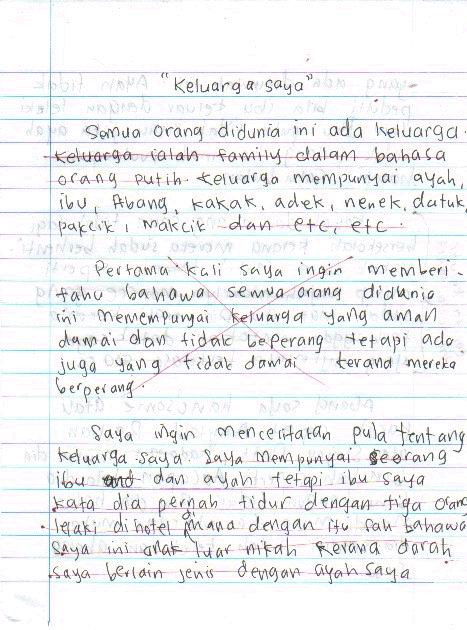 "Keluarga saya"
Semua orang didunia ini ada keluarga.
Keluarga ialah family dalam bahasa
orang putih. Keluarga mempunyai ayah,
ibu, Abang, kakak, adek, nenek, datuk,
pakcik, makcik dan etc, etc.
Pertama kali saya ingin memberi-
tahu bahawa semua orang didunia
ini memempunyai keluarga yang aman
damai dan tidak beperang tetapi ada
juga yang tidak damai kerana mereka
berperang.
Saya ingin menceritakan pula tentang
keluarga saya. Saya mempunyai seorang
ibu and dan ayah tetapi ibu saya
kata dia pernah tidur dengan tiga orang
lelaki di hotel di mana dengan itu sah bahawa
saya ini anak luar nikah kerana darah
saya berlain jenis dengan ayah saya